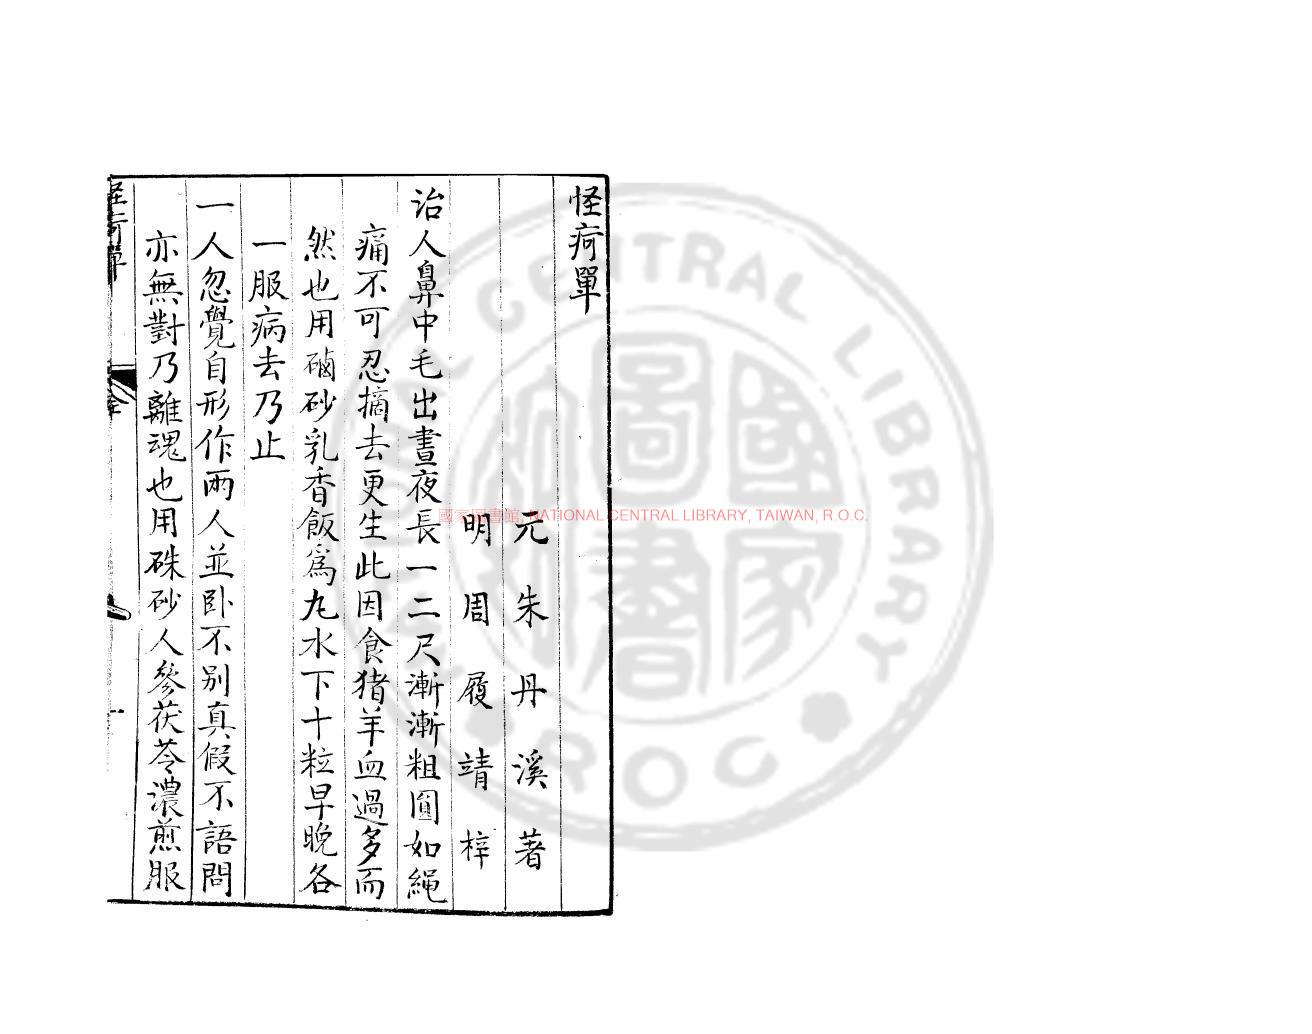 怪疴單
元朱丹溪著
明周履靖梓
治人鼻中毛出晝夜長一二尺漸漸粗圓如繩
痛不可忍摘去更生此因食猪羊血過多而
然也用硇砂乳香飯為丸水下十粒早晚各
一服病去乃止
一人忽覺自形作兩人並卧不别真假不語問
亦無對乃離魂也用硃砂人參茯苓濃煎服
怪疴單
一
國家圖書館, NATIONAL CENTRAL LIBRARY, TAIWAN, R.O.C.
NATIONAL CENTRAL LIBRARY
ROC
國家圖書